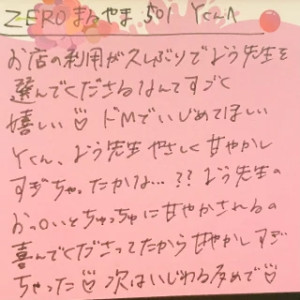 ZERO まんやま 501 Yくんへ
お店の利用が久しぶりでよう先生を
選んでくださるなんてすごく
嬉しい♡ ドMでいじめてほしい
Yくん、よう先生やさしく甘やかし
すぎちゃったかな…?? よう先生の
おっ○いとちゅっちゅに甘やかされるの
喜んでくださってたから甘やかしすぎ
ちゃった♡ 次はいじわる多めで♡